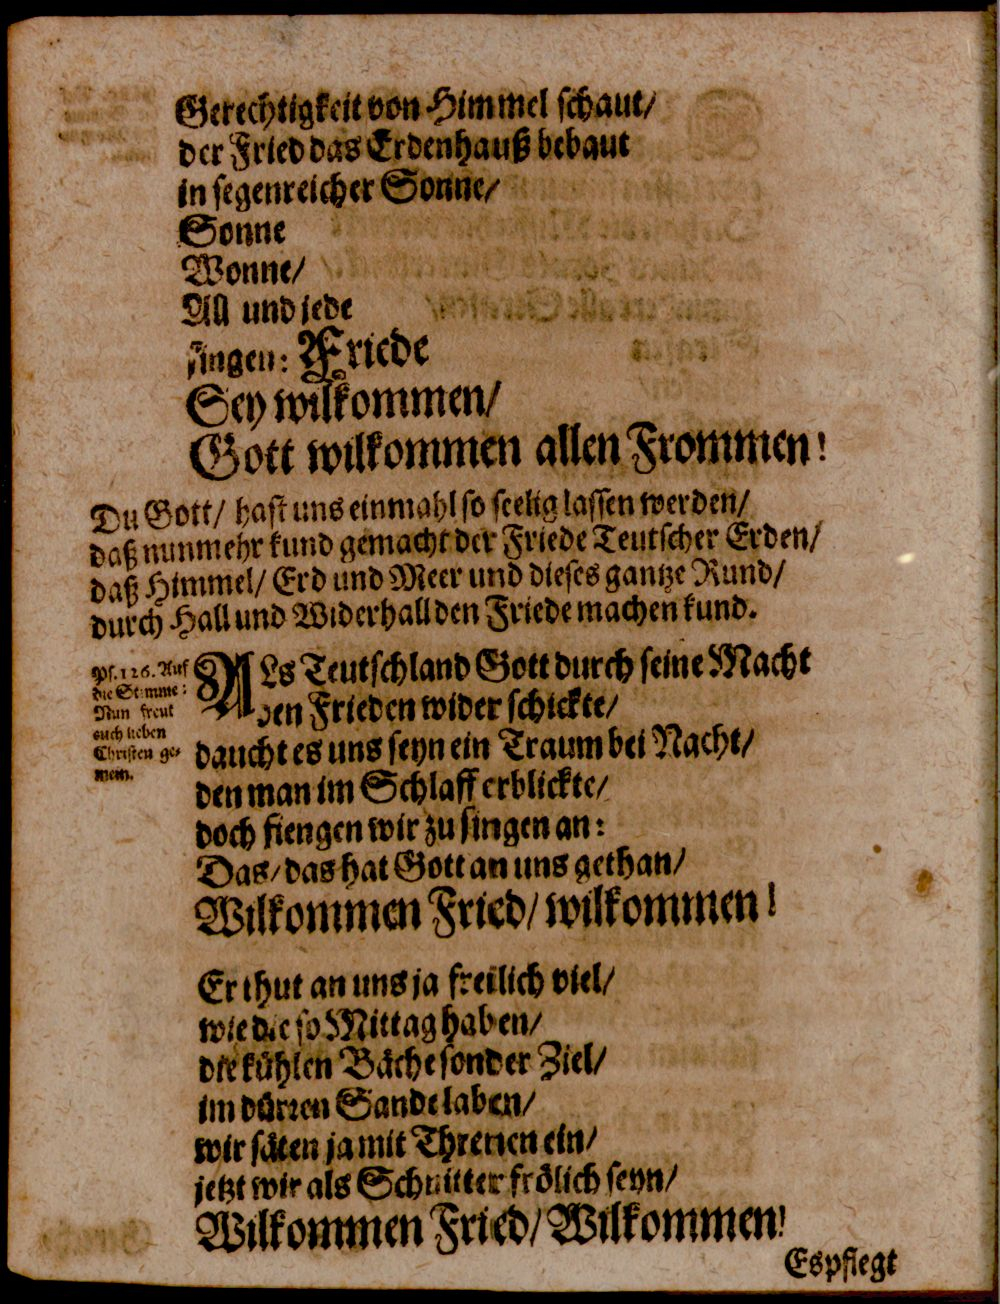 Gerechtigkeit von Himmel schaut/
der Fried das Erdenhauß bebaut
in segenreicher Sonne/
Sonne
Wonne/
All und jede
singen: Friede
Sey wilkommen/
Gott wilkommen allen Frommen!
Du Gott/ hast uns einmahl so seelig lassen werden/
daß nunmehr kund gemacht der Friede Teutscher Erden/
daß Himmel/ Erd und Meer und dieses gantze Rund/
durch Hall und Widerhall den Friede machen kund.
Ps. 126. Auf
die Stimme:
Nun freut
euch lieben
Christen ge-
mein.
ALs Teutschland Gott durch seine Macht
den Frieden wider schickte/
daucht es uns seyn ein Traum bei Nacht/
den man im Schlaff erblickte/
doch fiengen wir zu singen an:
Das/ das hat Gott an uns gethan/
Wilkommen Fried/ wilkommen!
Er thut an uns ja freilich viel/
wie die so Mittag haben/
die kühlen Bäche sonder Ziel/
im dürren Sande laben/
wir säten ja mit Threnen ein/
jetzt wir als Schnitter frölich seyn/
Wilkommen Fried/ Wilkommen!
Es pflegt